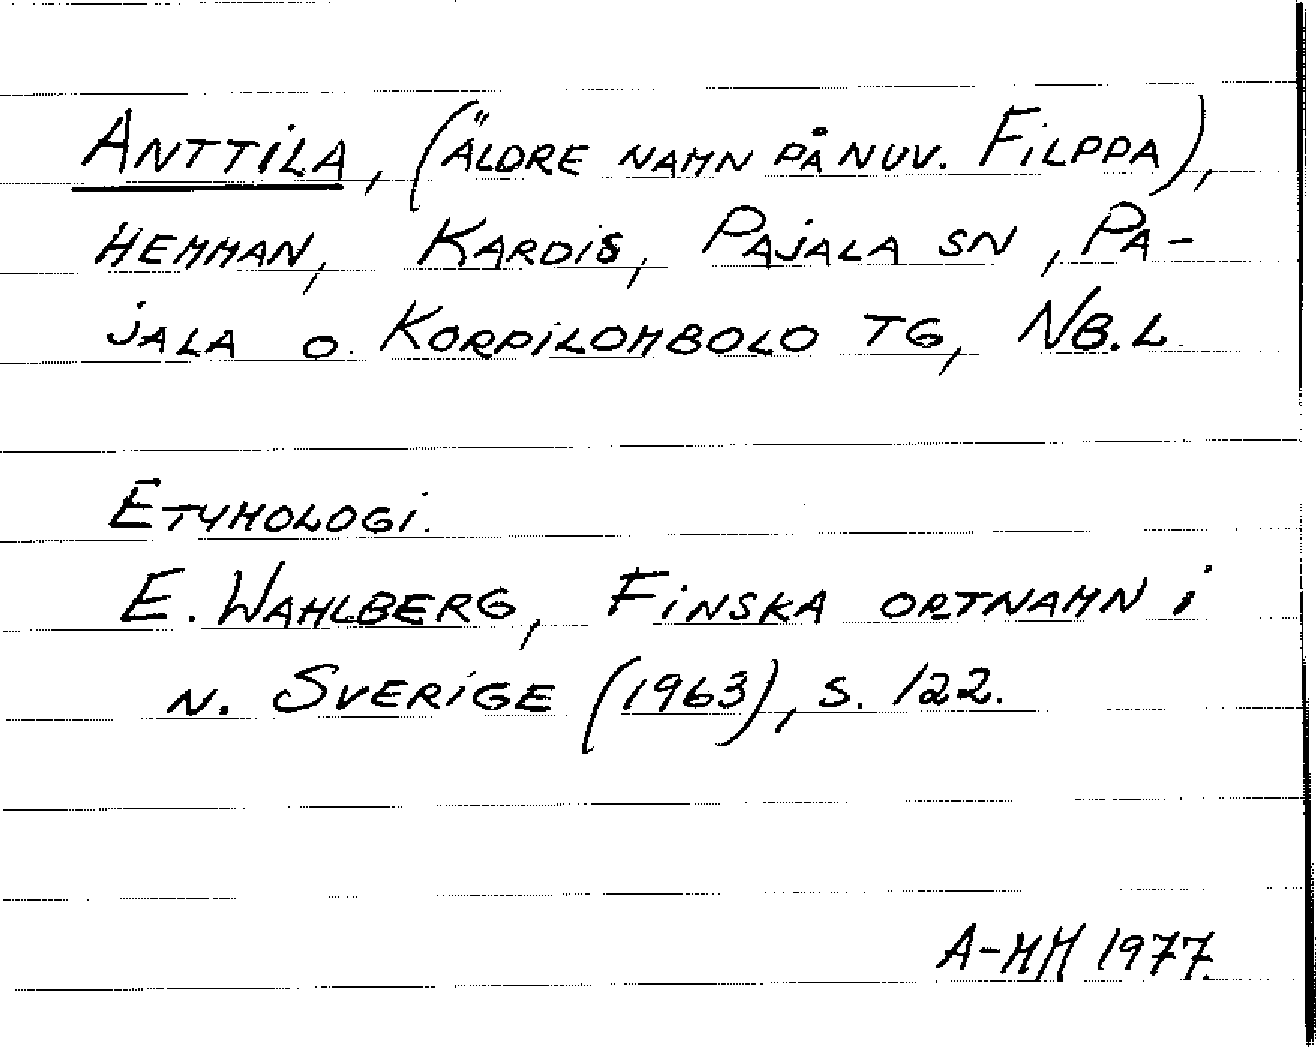 ANTTILA, (ÄLDRE NAMN PÅ NUV. FILPPA),
HEMMAN, KARDIS, PAJALA SN, PA-
JALA O. KORPILOMBOLO TG, NB.L
ETYMOLOGI.
E. WAHLBERG, FINSKA ORTNAMN i
N. SVERIGE (1963), S. 122.
A-MM 1977.